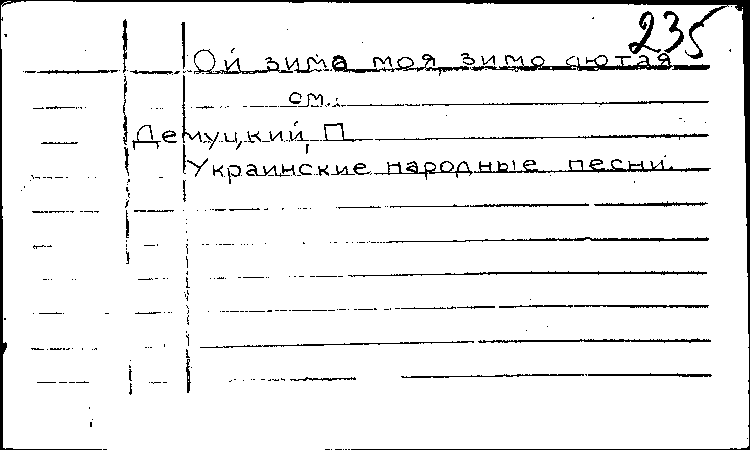 235
Ой зима моя, зимо лютая
см.:
Демуцкий, П.
Украинские народные песни.